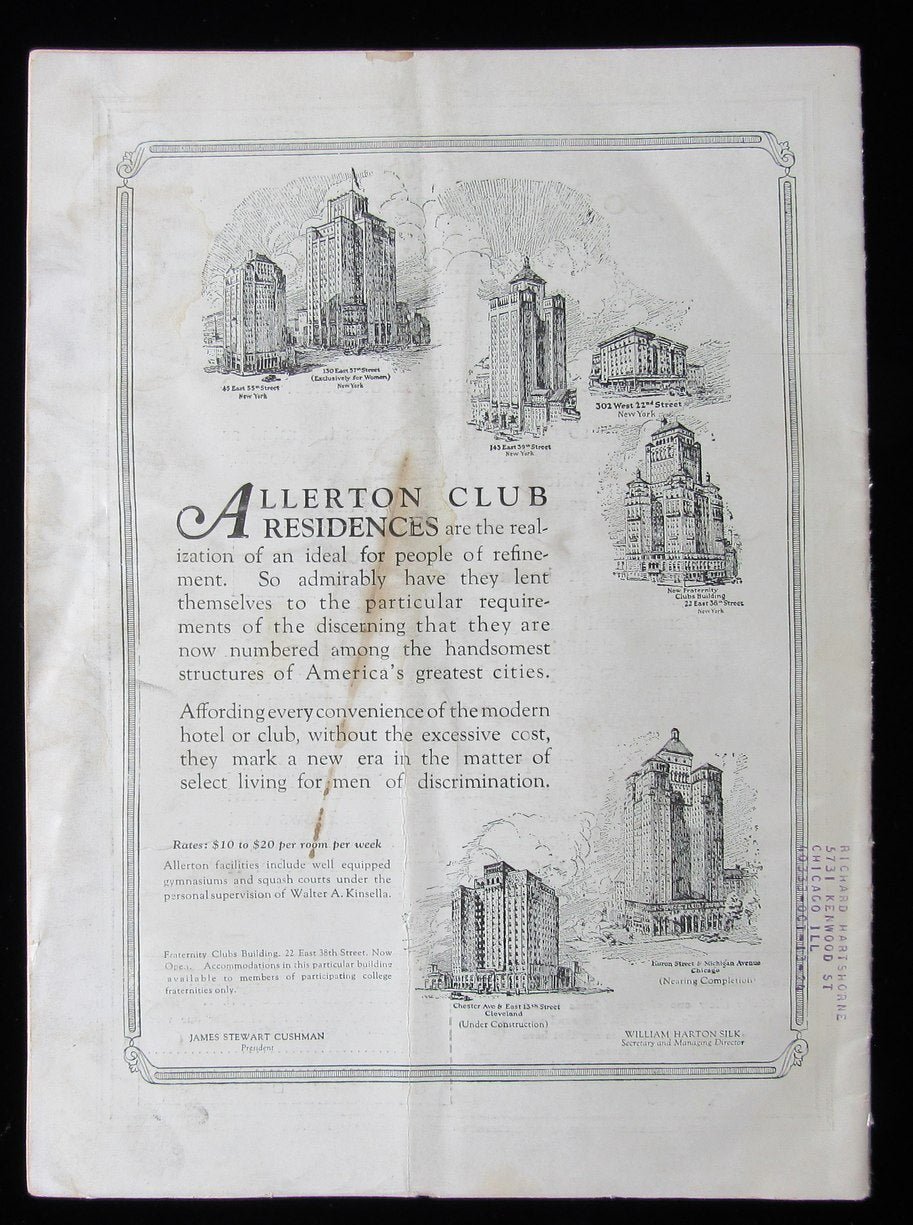 45 East 55th Street
New York
130 East 57th Street
(Exclusively for Women)
New York
143 East 39th Street
New York
302 West 22nd Street
New York
New Fraternity
Clubs Building
22 East 38th Street
New York
ALLERTON CLUB
RESIDENCES are the real-
ization of an ideal for people of refine-
ment. So admirably have they lent
themselves to the particular require-
ments of the discerning that they are
now numbered among the handsomest
structures of America's greatest cities.
Affording every convenience of the modern
hotel or club, without the excessive cost,
they mark a new era in the matter of
select living for men of discrimination.
Rates: $10 to $20 per room per week
Allerton facilities include well equipped
gymnasiums and squash courts under the
personal supervision of Walter A. Kinsella.
Fraternity Clubs Building, 22 East 38th Street, Now
Open. Accommodations in this particular building
available to members of participating college
fraternities only.
JAMES STEWART CUSHMAN
President
Chester Ave & East 13th Street
Cleveland
(Under Construction)
Huron Street & Michigan Avenue
Chicago
(Nearing Completion)
WILLIAM HARTON SILK
Secretary and Managing Director
RICHARD HARTSHORNE
5731 KENWOOD ST
CHICAGO ILL